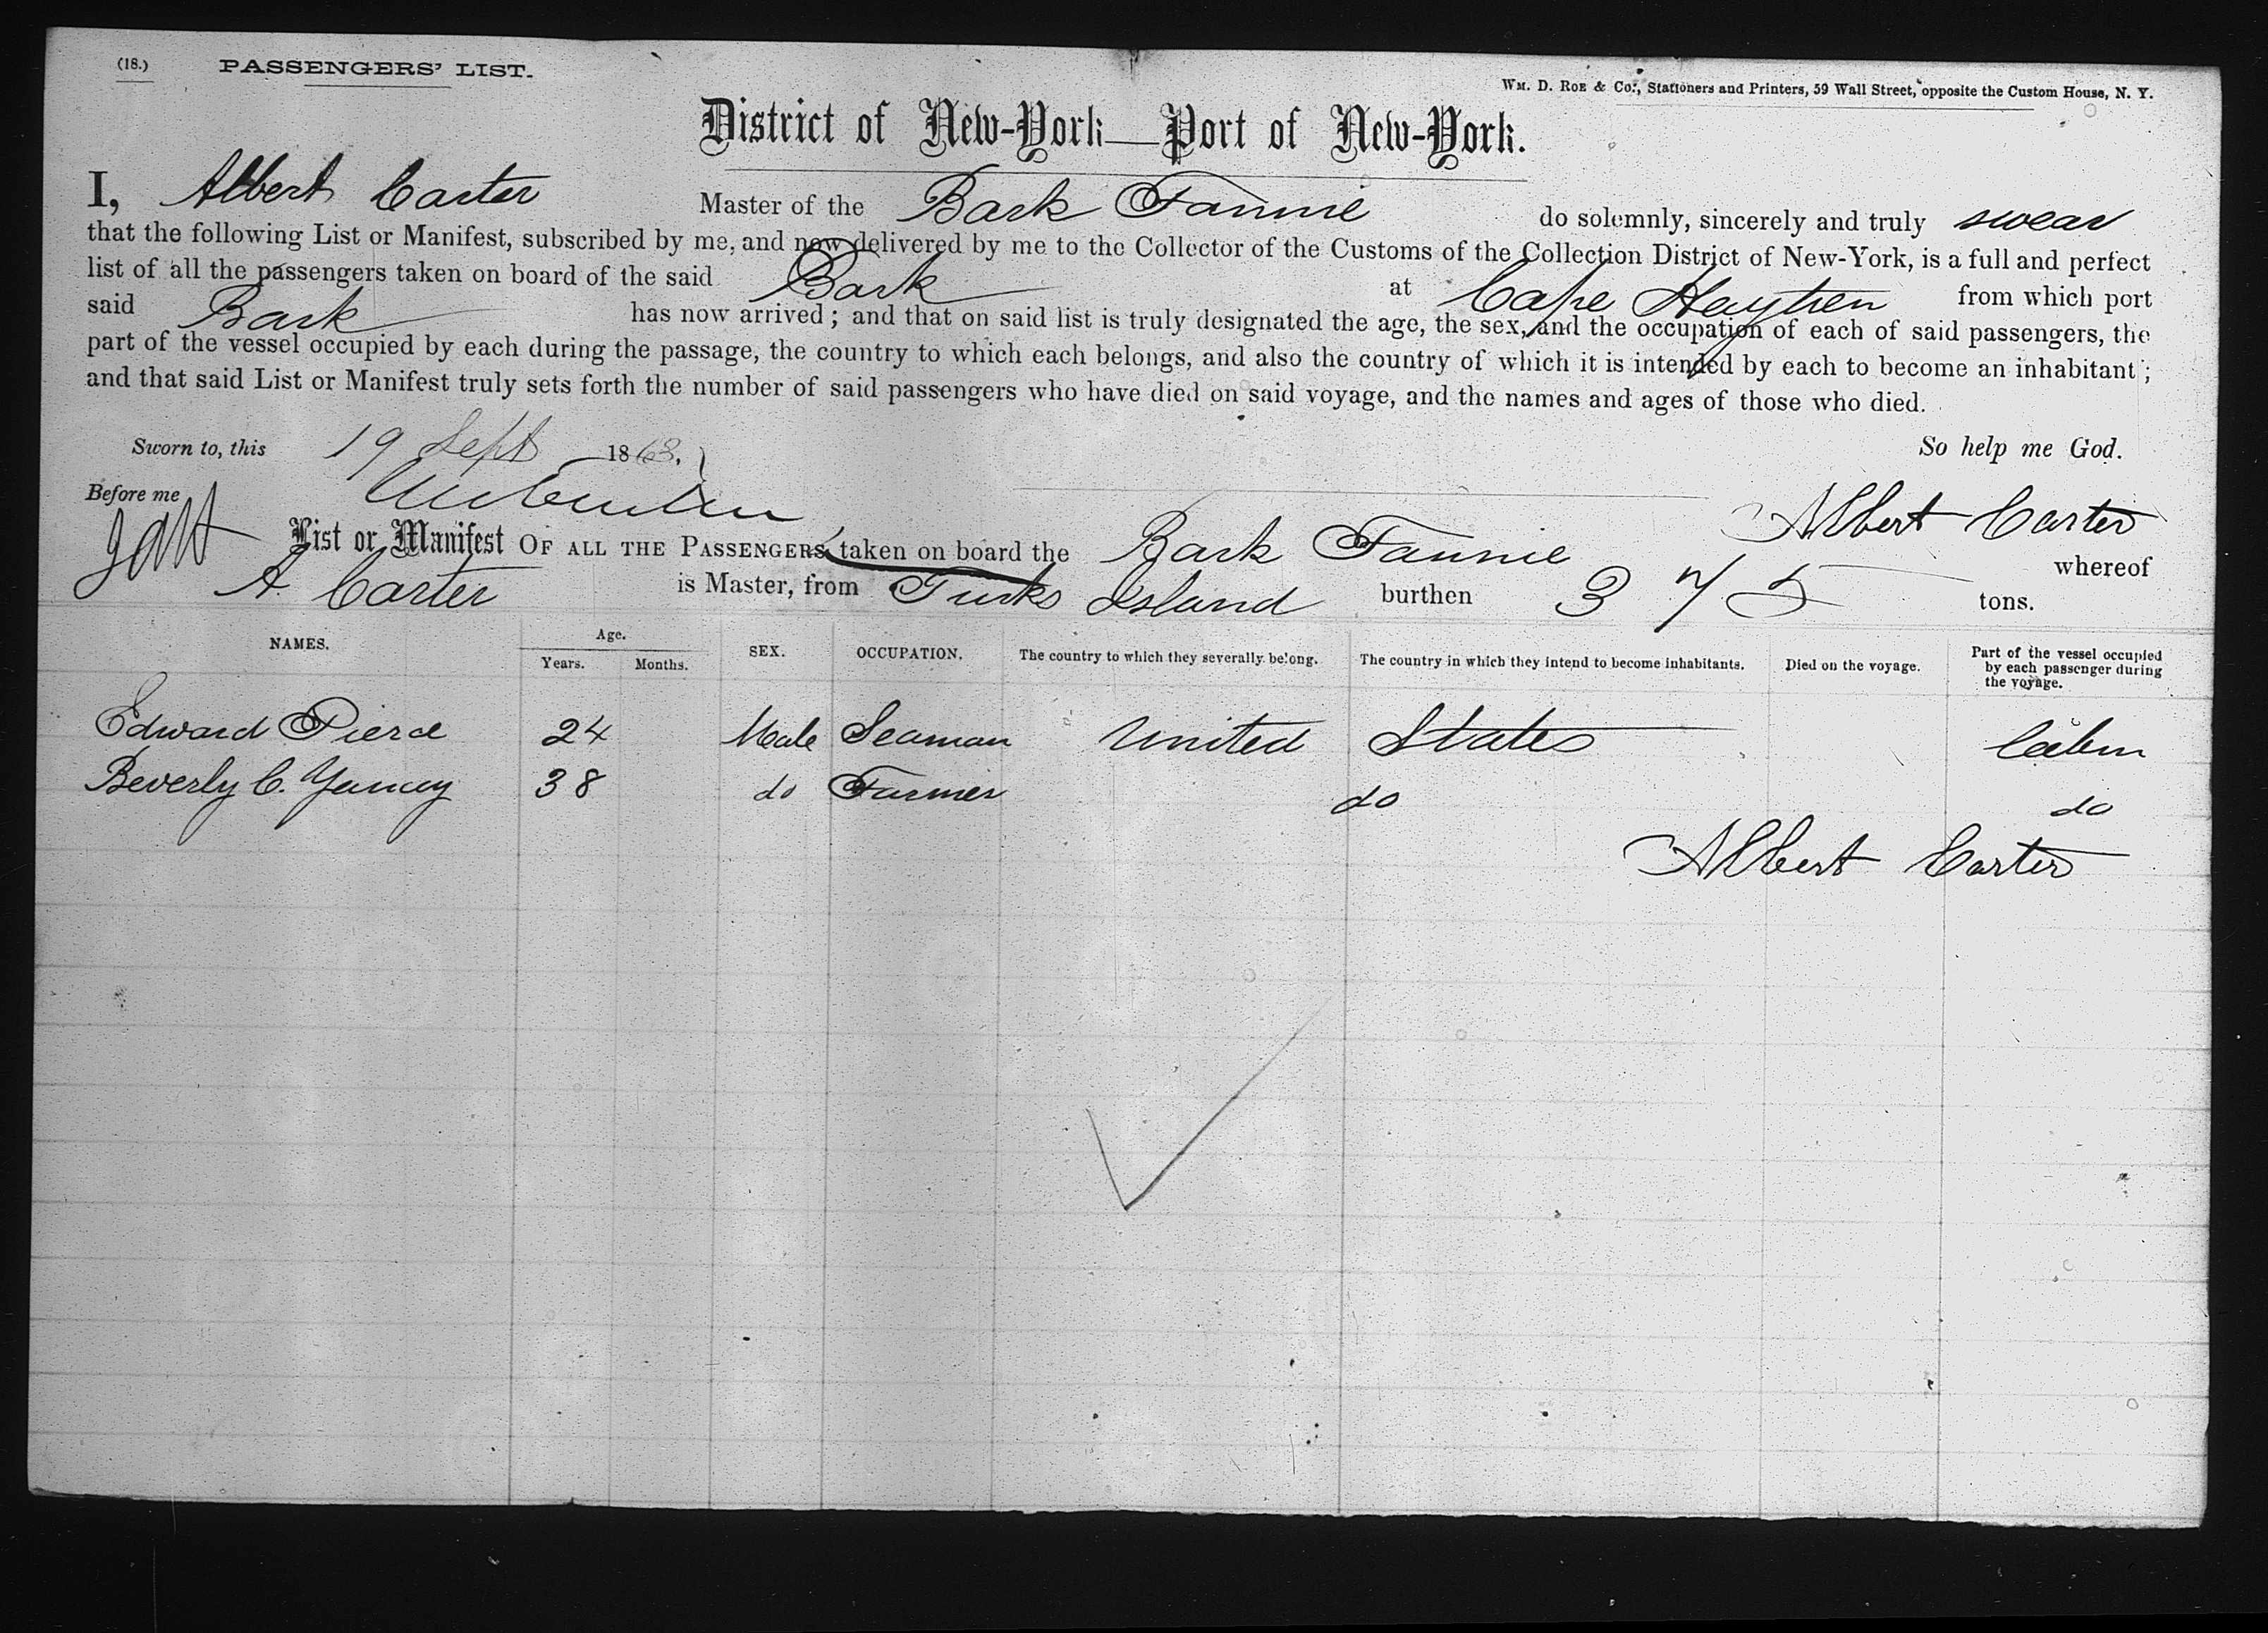 (18.) PASSENGERS' LIST.
WM. D. ROE & Co., Stationers and Printers, 59 Wall Street, opposite the Custom House, N. Y.
District of New-York—Port of New-York.
I, Albert Carter Master of the Bark Fannie do solemnly, sincerely and truly swear
that the following List or Manifest, subscribed by me, and now delivered by me to the Collector of the Customs of the Collection District of New-York, is a full and perfect
list of all the passengers taken on board of the said Bark at Cape Haytien from which port
said Bark has now arrived; and that on said list is truly designated the age, the sex, and the occupation of each of said passengers, the
part of the vessel occupied by each during the passage, the country to which each belongs, and also the country of which it is intended by each to become an inhabitant;
and that said List or Manifest truly sets forth the number of said passengers who have died on said voyage, and the names and ages of those who died.
Sworn to, this 19 Sept 1863. So help me God.
Before me
Albert Carter
List or Manifest OF ALL THE PASSENGERS taken on board the Bark Fannie whereof
A. Carter is Master, from Turks Island burthen 375 tons.
NAMES. Age. Years. Months. SEX. OCCUPATION. The country to which they severally belong. The country in which they intend to become inhabitants. Died on the voyage. Part of the vessel occupied by each passenger during the voyage.
Edward Pierce 24 Male Seaman United States Cabin
Beverly C. Yancey 38 do Farmer do do
Albert Carter